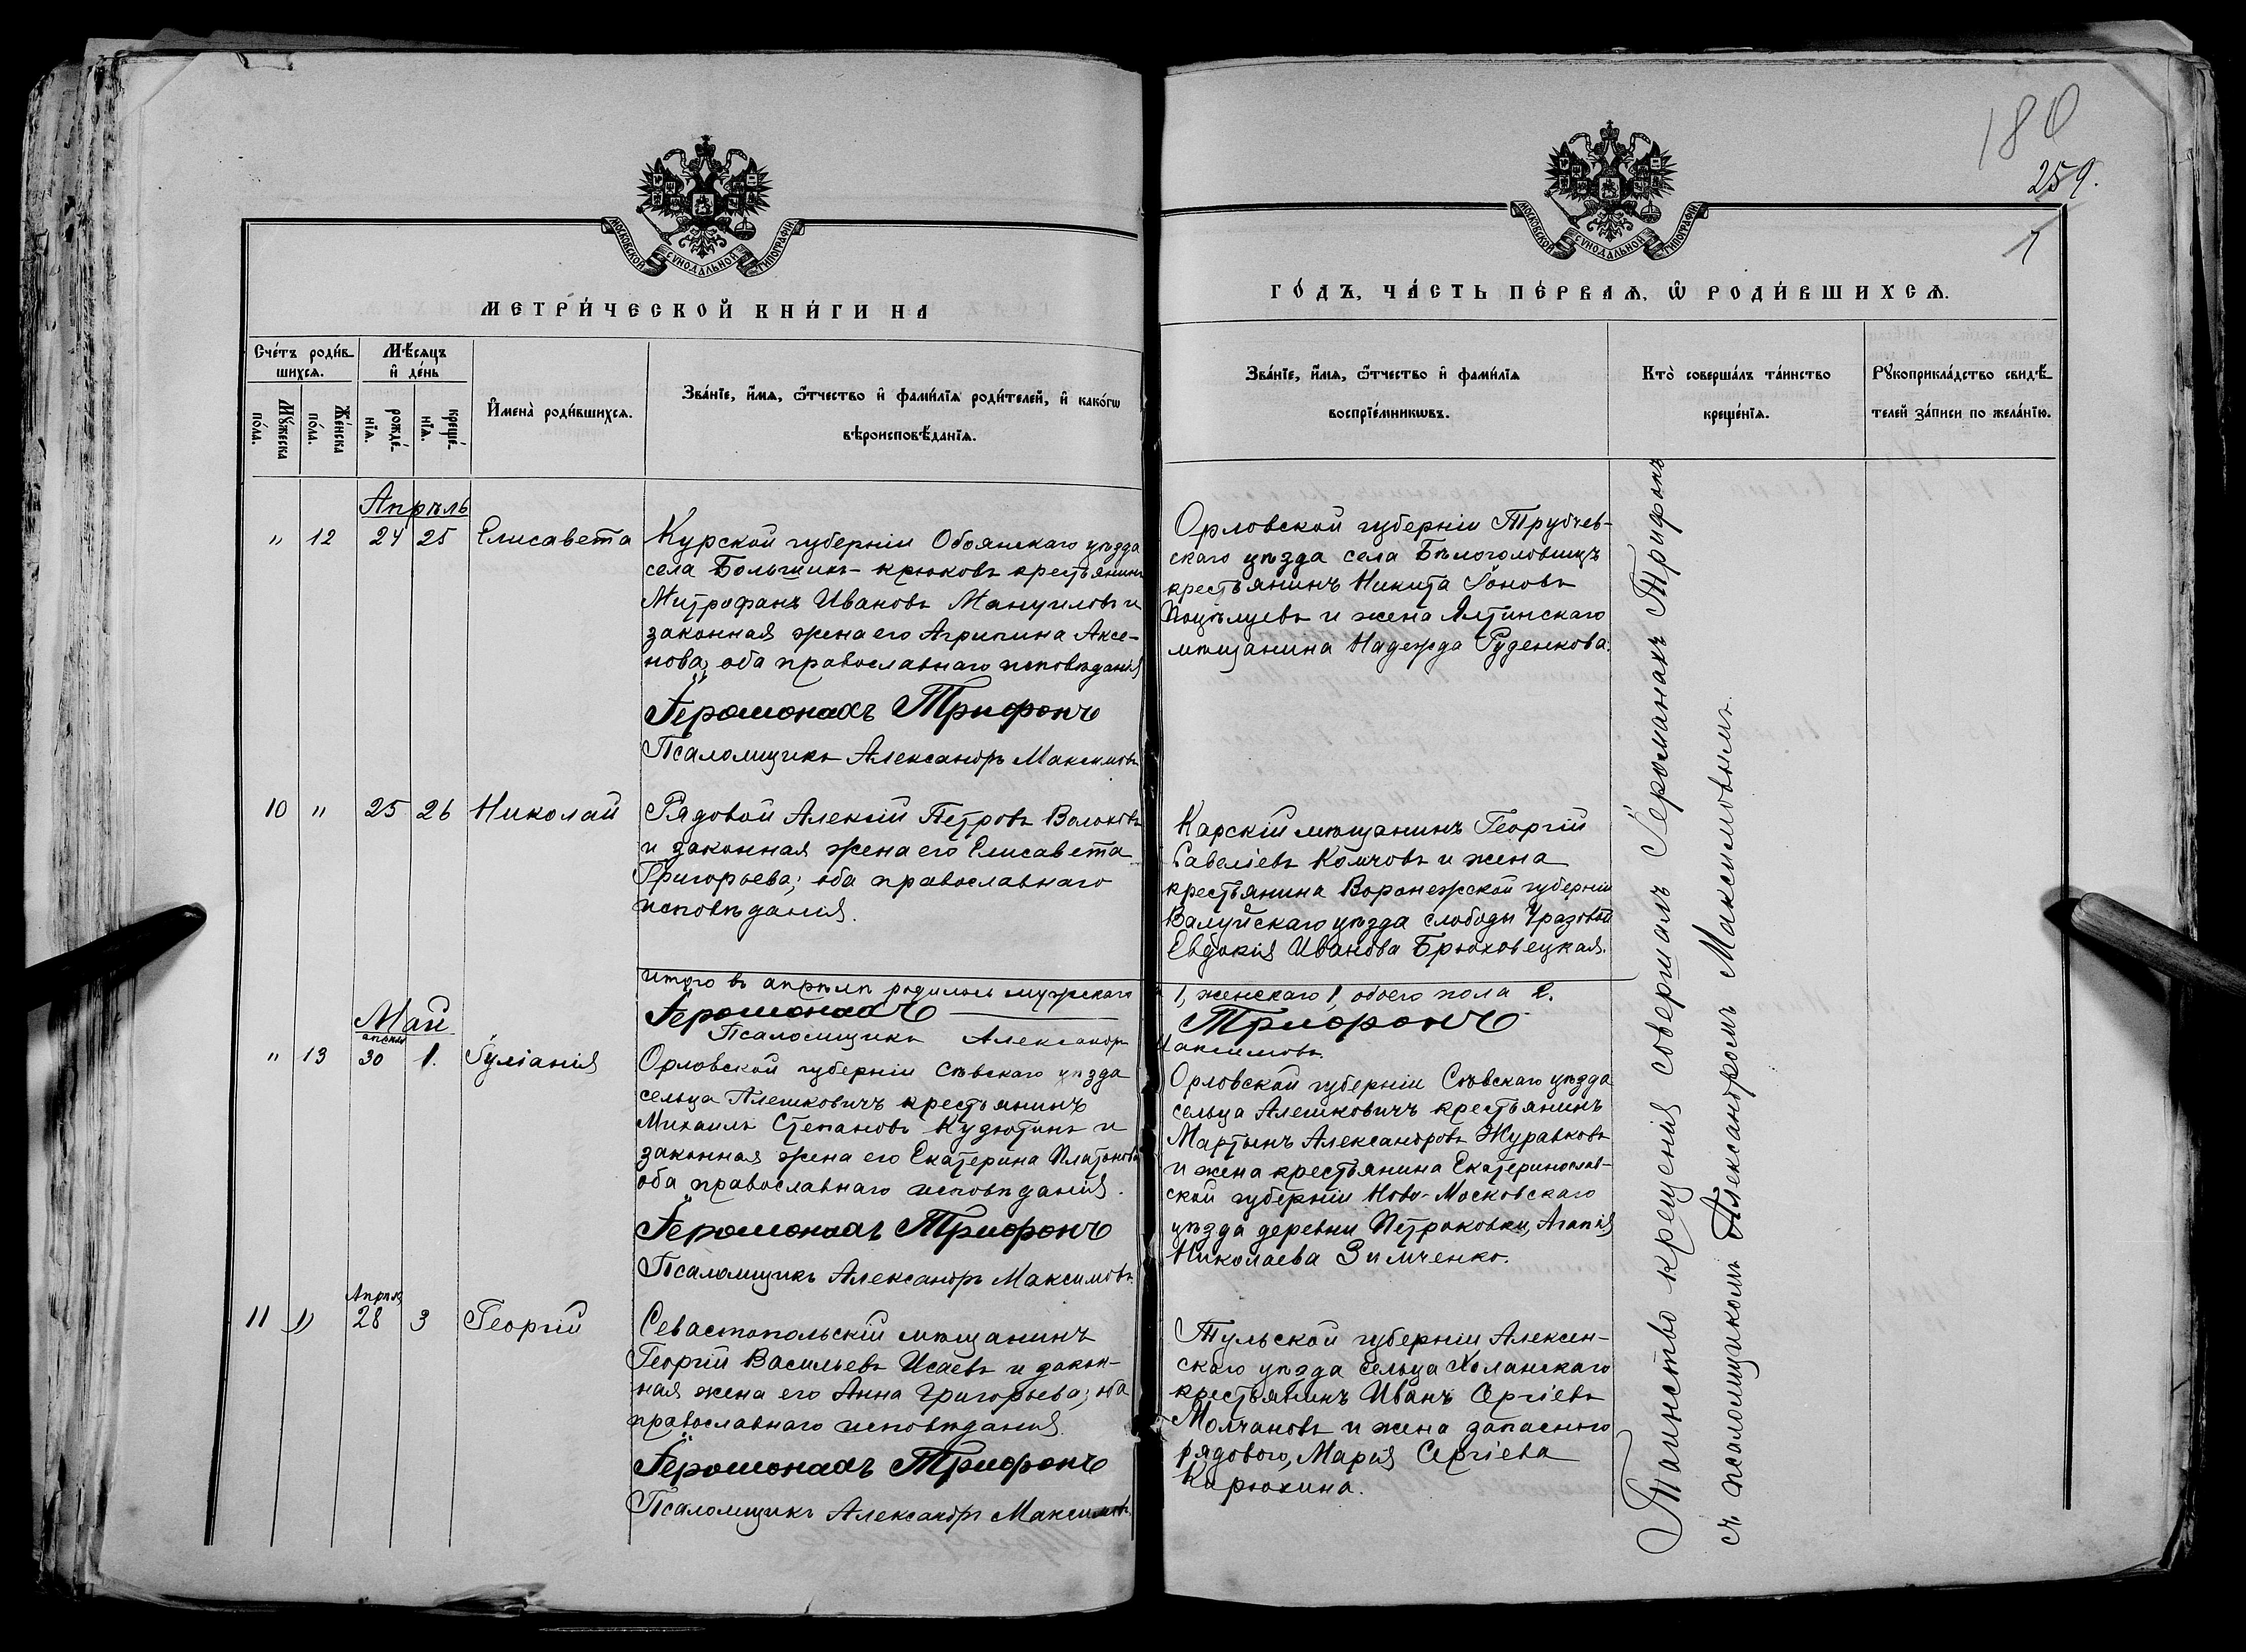 180
259.
7
МОСКОВСКОЙ СѴНОДАЛЬНОЙ ТИПОГРАФІИ
МОСКОВСКОЙ СѴНОДАЛЬНОЙ ТИПОГРАФІИ
МЕТРИ́ЧЕСКОЙ КНИ́ГИ НА
ГО́ДЪ, ЧА́СТЬ ПЕ́РВАѦ, Ѽ РОДИ́ВШИХСѦ.
Сче́тъ роди́в-
шихсѧ.
Мꙋ́жеска
по́ла.
Же́нска
по́ла.
Мѣ́сѧцъ
и҆ де́нь
рожде́-
нїѧ.
креще́-
нїѧ.
И҆мена̀ роди́вшихсѧ.
Зва́нїе, и҆́мѧ, ѻ҆́тчество и҆ фами́лїѧ роди́телей, и҆ како́гѡ
вѣроисповѣ́данїѧ.
Зва́нїе, и҆́мѧ, ѻ҆́тчество и҆ фами́лїѧ
воспрїе́мникѡвъ.
Кто̀ соверша́лъ та́инство
креще́нїѧ.
Рꙋкоприкла́дство свидѣ́-
телей за́писи по жела́нїю.
Апрѣль
" 12 24 25 Елисавета
Курской губерніи Обоянскаго уѣзда
села Большихъ-крюковъ крестьянинъ
Митрофанъ Ивановъ Мануиловъ и
законная жена его Агрипина Аксе-
нова; оба православнаго исповѣданія
Іеромонахъ Трифонъ
Псаломщикъ Александръ Максимовъ
Орловской губерніи Трубчев-
скаго уѣзда села Бѣлоголовицъ
крестьянинъ Никита Іоновъ
Поцѣлуевъ и жена Ялтинскаго
мѣщанина Надежда Руденкова.
10 " 25 26 Николай
Рядовой Алексій Петровъ Волоковъ
и законная жена его Елисавета
Григорьева; оба православнаго
исповѣданія.
Карскій мѣщанинъ Георгій
Савеліевъ Комчовъ и жена
крестьянина Воронежской губерніи
Валуйскаго уѣзда слободы Уразовой
Евдокія Иванова Брюховецкая.
итого въ апрѣлѣ родилось мужскаго 1, женскаго 1, обоего пола 2.
Іеромонахъ Трифонъ
Псаломщикъ Александръ Максимовъ.
Май
апрѣля
" 13 30 1. Іуліанія
Орловской губерніи Сѣвскаго уѣзда
сельца Алешковичъ крестьянинъ
Михаилъ Степановъ Кудютинъ и
законная жена его Екатерина Платонова
оба православнаго исповѣданія.
Іеромонахъ Трифонъ
Псаломщикъ Александръ Максимовъ.
Орловской губерніи Сѣвскаго уѣзда
сельца Алешковичъ крестьянинъ
Мартынъ Александровъ Журавковъ
и жена крестьянина Екатеринослав-
ской губерніи Ново-Московскаго
уѣзда деревни Петраковки, Агапія
Николаева Зимченко.
Апрѣля
11 " 28 3 Георгій
Севастопольскій мѣщанинъ
Георгій Васильевъ Исаевъ и закон-
ная жена его Анна Григорьева; оба
православнаго исповѣданія.
Іеромонахъ Трифонъ
Псаломщикъ Александръ Максимовъ.
Тульской губерніи, Алексин-
скаго уѣзда сельца Холанскаго
крестьянинъ Иванъ Сергіевъ
Молчановъ и жена запаснаго
рядового, Марія Сергіева
Карюхина.
Таинство крещенія совершалъ Іеромонахъ Трифонъ
съ псаломщикомъ Александромъ Максимовымъ.